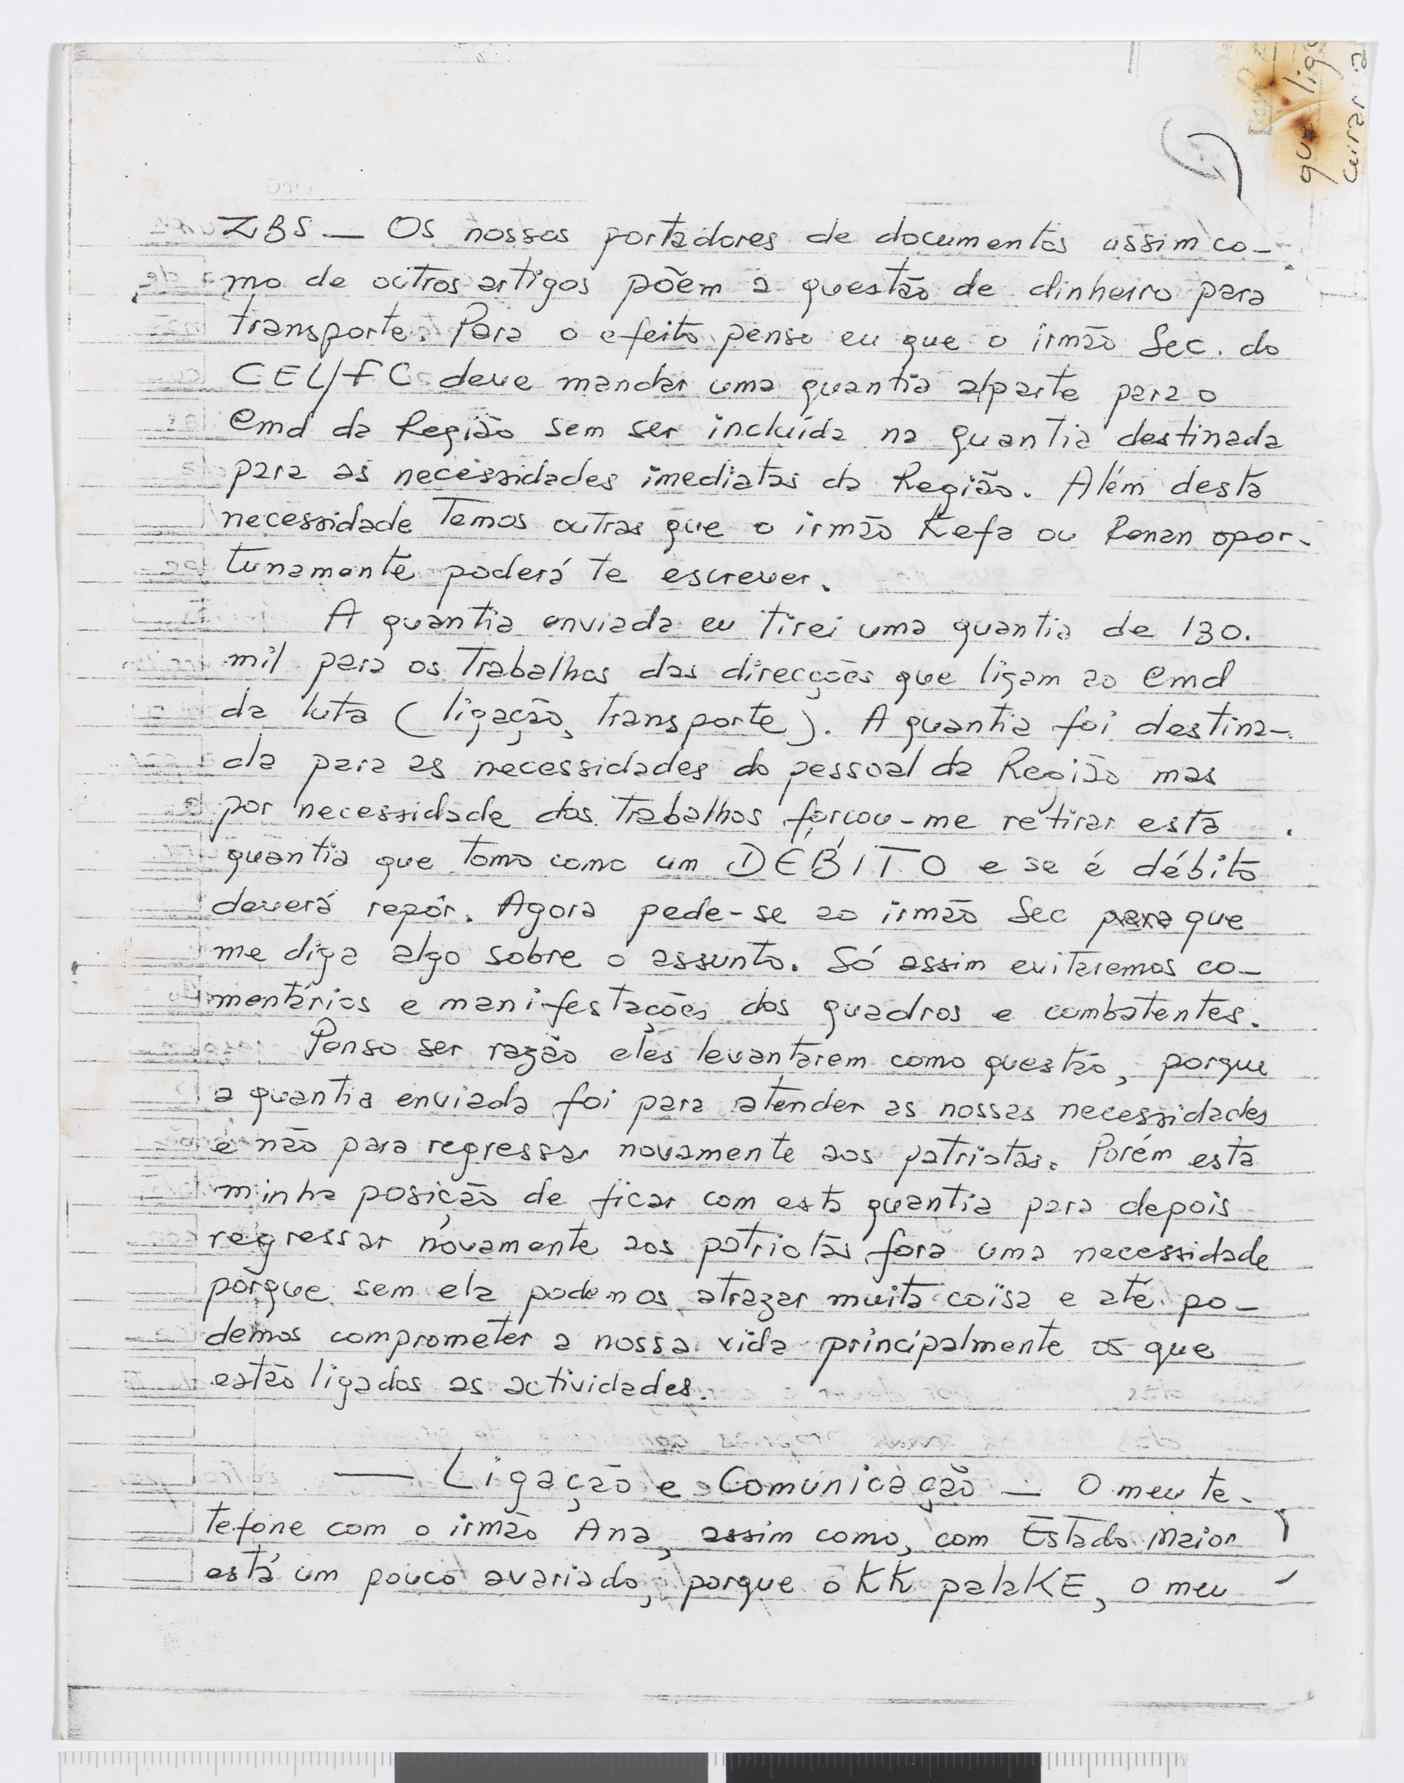 que lig
ZBS — Os nossos portadores de documentos assim co-
mo de outros artigos põem a questão de dinheiro para
transporte. Para o efeito penso eu que o irmão Sec. do
CEL/FC deve mandar uma quantia a/parte para o
Cmd da Região sem ser incluída na quantia destinada
para as necessidades imediatas da Região. Além desta
necessidade temos outras que o irmão Kefa ou Renan opor-
tunamente poderá te escrever.
A quantia enviada eu tirei uma quantia de 130.
mil para os trabalhos das direcções que ligam ao Cmd
da luta (ligação, transporte). A quantia foi destina-
da para as necessidades do pessoal da Região mas
por necessidade dos trabalhos forçou-me retirar esta
quantia que tomo como um DÉBITO e se é débito
deverá repôr. Agora pede-se ao irmão Sec para que
me diga algo sobre o assunto. Só assim evitaremos co-
mentários e manifestações dos quadros e combatentes.
Penso ser razão eles levantarem como questão, porque
a quantia enviada foi para atender as nossas necessidades
e não para regressar novamente aos patriotas. Porém esta
minha posição de ficar com esta quantia para depois
regressar novamente aos patriotas fora uma necessidade
porque sem ela podemos atrazar muita coisa e até po-
demos comprometer a nossa vida principalmente os que
estão ligados as actividades.
— Ligação e Comunicação — O meu te-
tefone com o irmão Ana, assim como, com Estado Maior
está um pouco avariado, porque o KK palaKE, o meu